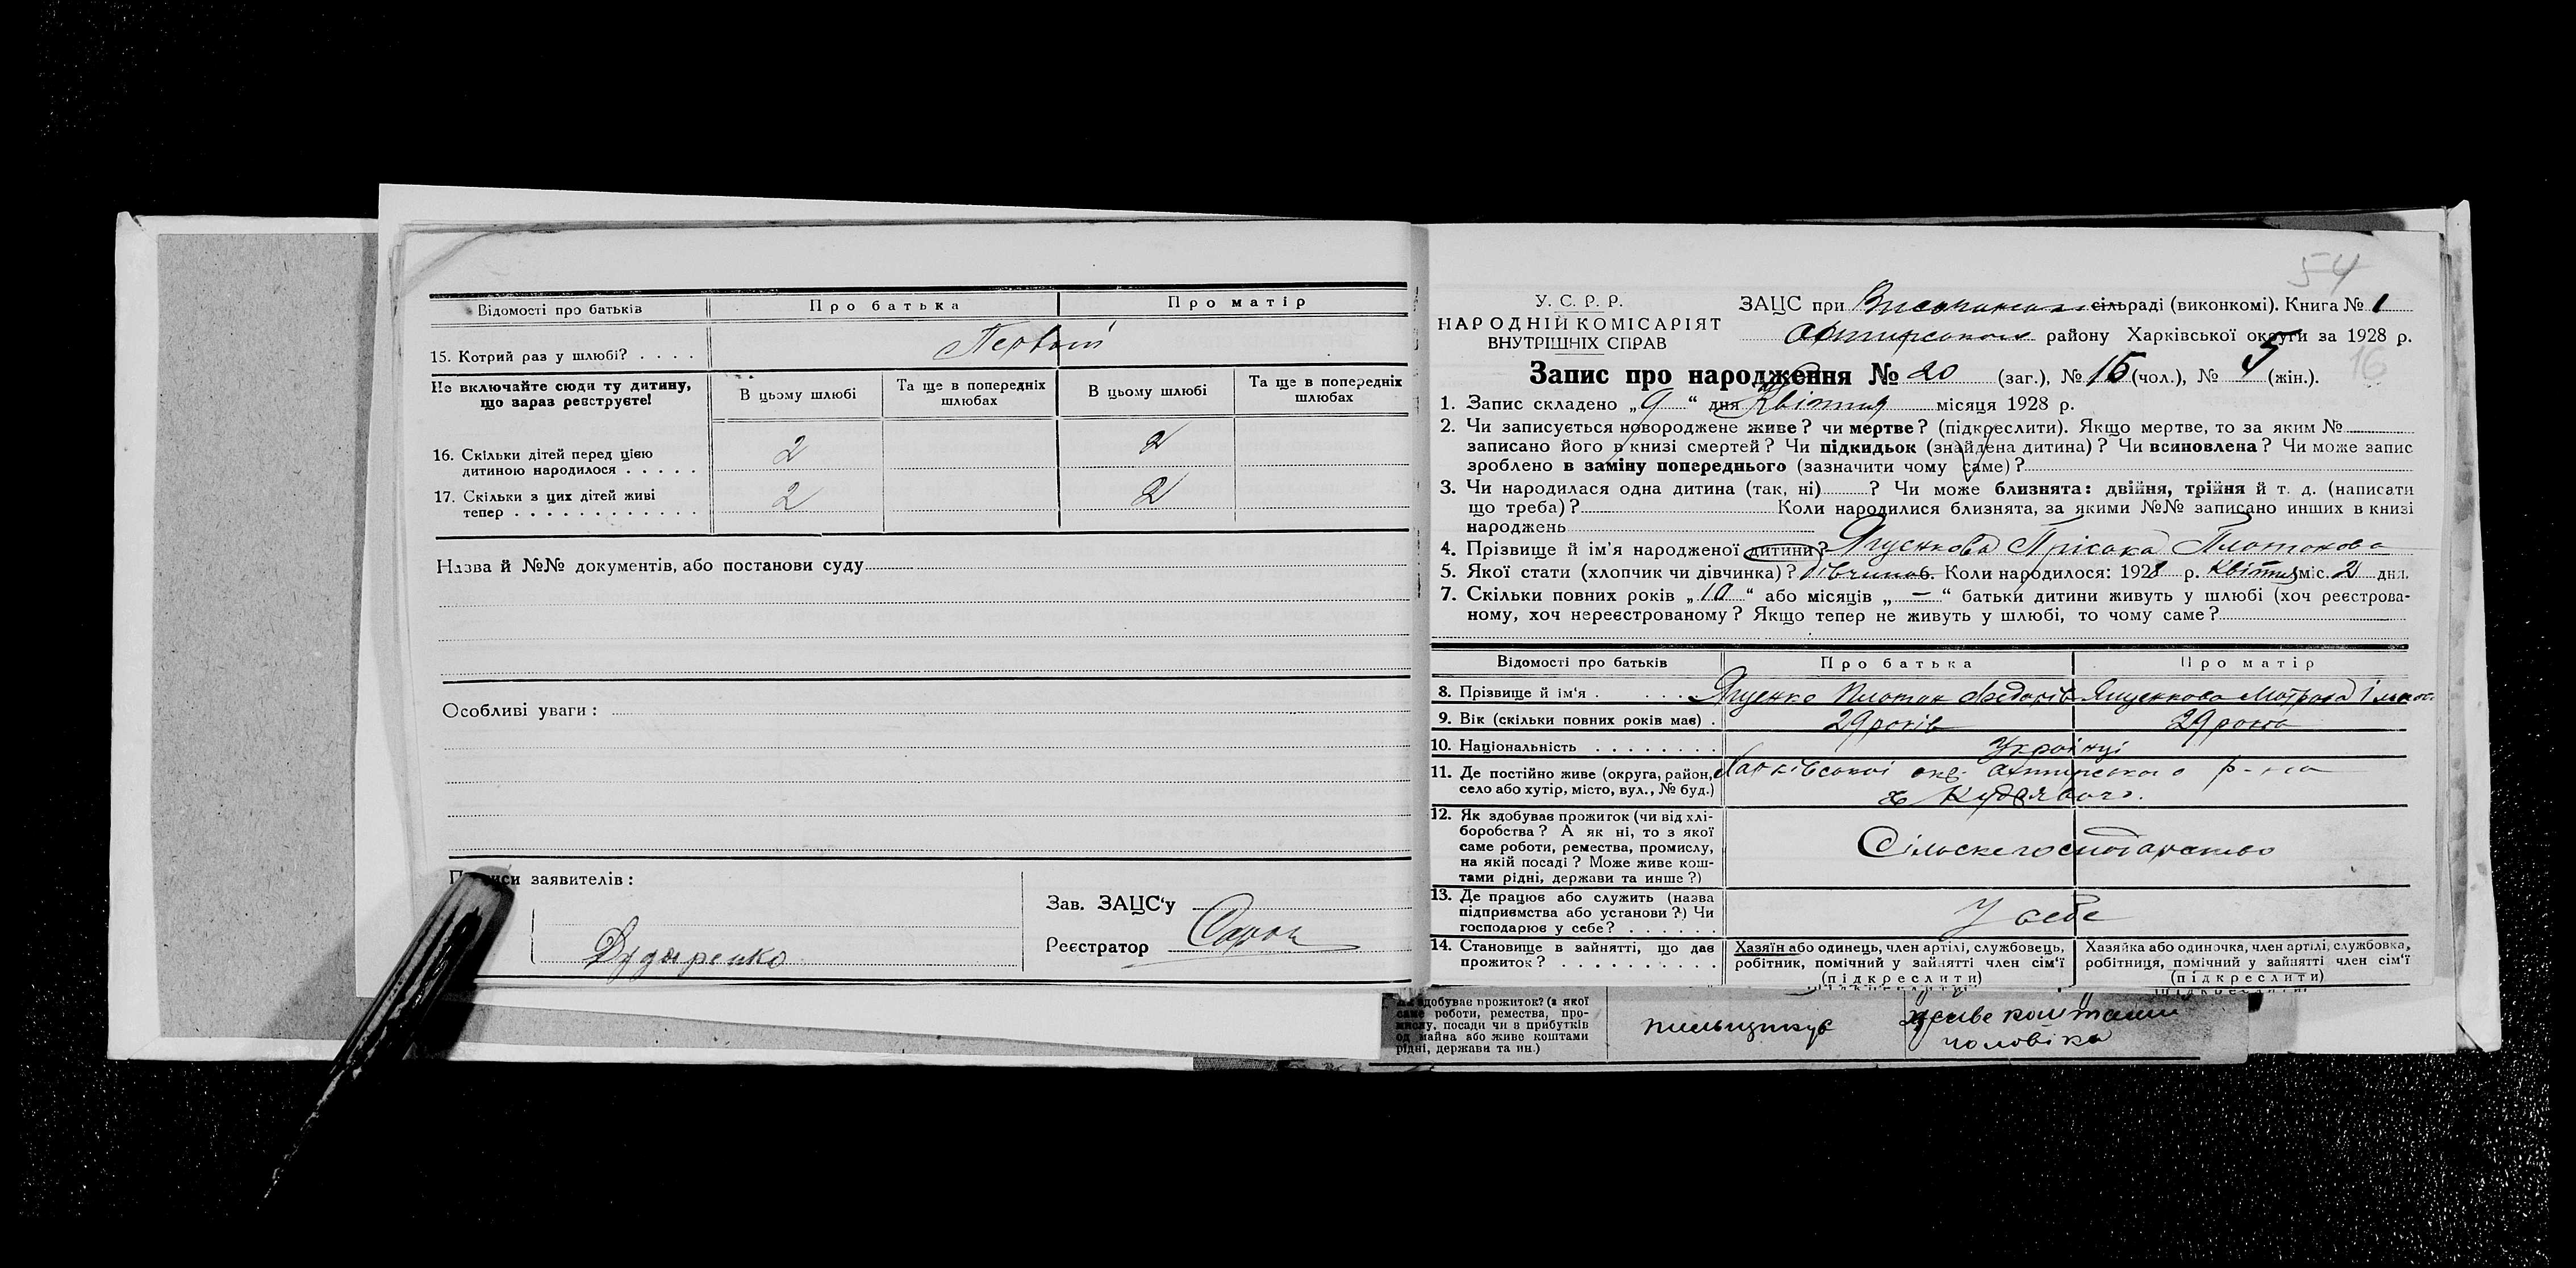 Відомості про батьків
Про батька
Про матір
15. Котрий раз у шлюбі? . . . .
Первий
Не включайте сюди ту дитину, що зараз реєструєте!
В цьому шлюбі
Та ще в попередніх шлюбах
В цьому шлюбі
Та ще в попередніх шлюбах
16. Скільки дітей перед цією
дитиною народилося . . . . .
2
2
17. Скільки з цих дітей живі
тепер . . . . . . . . . . . .
2
2
Назва й №№ документів, або постанови суду
Особливі уваги:
заявителів:
Зав. ЗАЦС'у
Реєстратор
54
У. С. Р. Р.
НАРОДНІЙ КОМІСАРІЯТ
ВНУТРІШНІХ СПРАВ
ЗАЦС при сільраді (виконкомі). Книга № 1
Охтирського району Харківської округи за 1928 р.
16
Запис про народження № 20 (заг.), № 15 (чол.), № 5 (жін.).
1. Запис складено „9“ дня Квітня місяця 1928 р.
2. Чи записується новороджене живе? чи мертве? (підкреслити). Якщо мертве, то за яким №
записано його в книзі смертей? Чи підкидьок (знайдена дитина)? Чи всиновлена? Чи може запис
зроблено в заміну попереднього (зазначити чому саме)?
3. Чи народилася одна дитина (так, ні) ? Чи може близнята: двійня, трійня й т. д. (написати
що треба)? Коли народилися близнята, за якими №№ записано инших в книзі
народжень
4. Прізвище й ім'я народженої дитини? Ященкова Пріська Платонова
5. Якої стати (хлопчик чи дівчинка)? Коли народилося: 1928 р. Квітня міс. 2 дня.
7. Скільки повних років „10“ або місяців „—“ батьки дитини живуть у шлюбі (хоч реєстрова-
ному, хоч нереєстрованому? Якщо тепер не живуть у шлюбі, то чому саме?
Відомості про батьків
Про батька
Про матір
8. Прізвище й ім'я . . . . .
Ященко Платон Федорів
Ященкова Мотрона
9. Вік (скільки повних років має) .
29 років
29 років
10. Національність . . . . . . . .
Українці
11. Де постійно живе (округа, район,
село або хутір, місто, вул., № буд.)
Харківської окр. Охтирського р-на
12. Як здобуває прожиток (чи від хлі-
боробства? А як ні, то з якої
саме роботи, ремества, промислу,
на якій посаді? Може живе кош-
тами рідні, держави та инше?)
Сільскегосподарство
13. Де працює або служить (назва
підприємства або установи?) Чи
господарює у себе? . . . . . .
У себе
14. Становище в зайнятті, що дає
прожиток? . . . . . . . . . .
Хазяїн або одинець, член артілі, службовець,
робітник, помічний у зайнятті член сім'ї
(підкреслити)
Хазяйка або одиночка, член артілі, службовка,
робітниця, помічний у зайнятті член сім'ї
(підкреслити)
здобуває прожиток? (з якої
саме роботи, ремества, про-
мислу, посади чи з прибутків
од майна або живе коштами
рідні, держави та ин.)
живе коштами
чоловіка